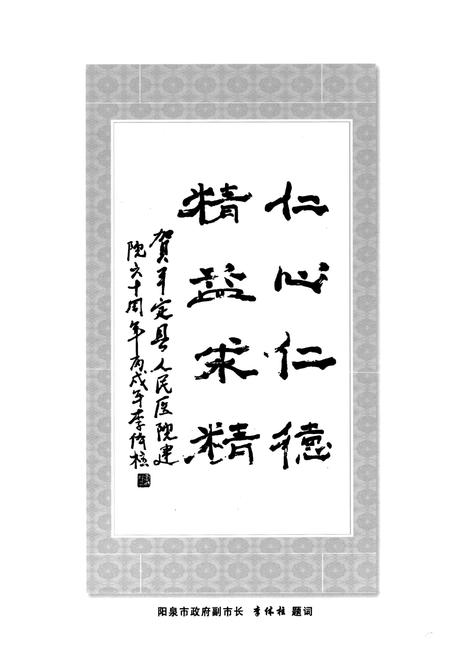 仁心仁德
精益求精
贺平定县人民医院建
院六十周年丙戌年李
阳泉市政府副市长 李体柱 题词